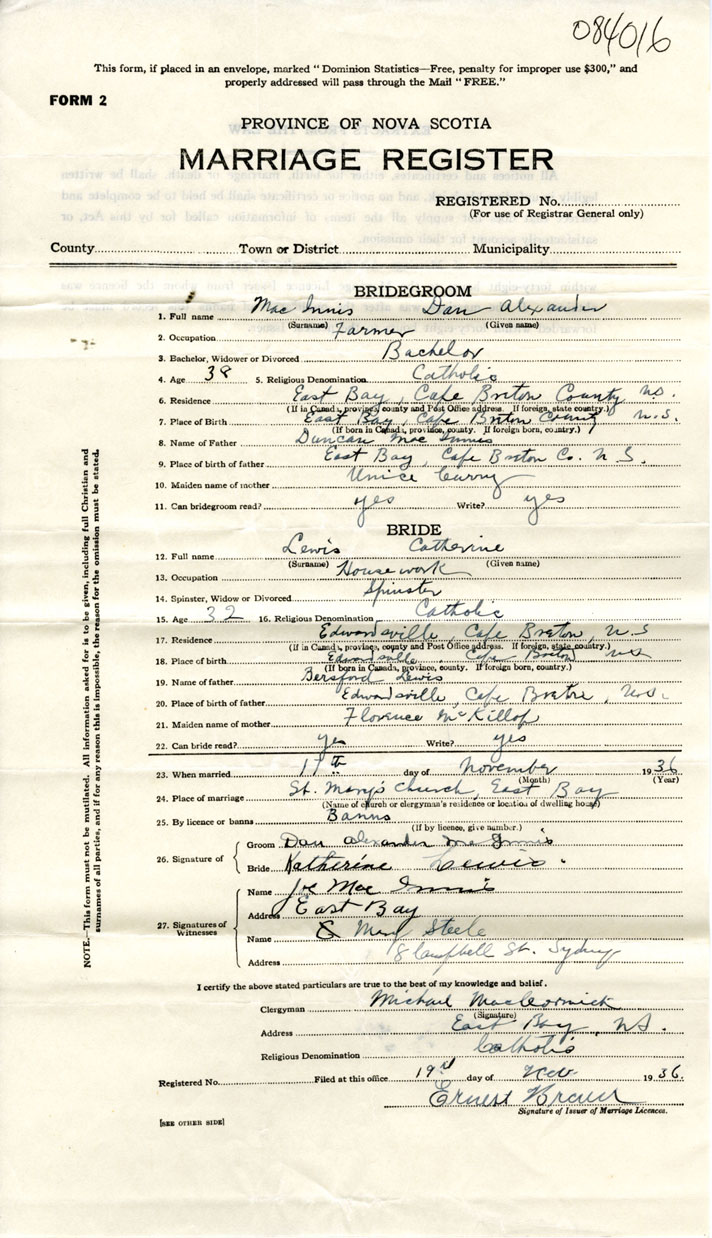 084016
This form, if placed in an envelope, marked "Dominion Statistics—Free, penalty for improper use $300," and
properly addressed will pass through the Mail "FREE."
FORM 2
PROVINCE OF NOVA SCOTIA
MARRIAGE REGISTER
REGISTERED No.
(For use of Registrar General only)
County Town or District Municipality
BRIDEGROOM
1. Full name Mac Innis Dan Alexander
(Surname) (Given name)
2. Occupation Farmer
3. Bachelor, Widower or Divorced Bachelor
4. Age 38 5. Religious Denomination Catholic
6. Residence East Bay, Cape Breton County N.S.
(If in Canada, province, county and Post Office address. If foreign, state country.)
7. Place of Birth East Bay, Cape Breton County N.S.
(If born in Canada, province, county. If foreign born, country.)
8. Name of Father Duncan Mac Innis
9. Place of birth of father East Bay, Cape Breton Co. N.S.
10. Maiden name of mother Unice Curry
11. Can bridegroom read? yes Write? yes
BRIDE
12. Full name Lewis Catherine
(Surname) (Given name)
13. Occupation Housework
14. Spinster, Widow or Divorced Spinster
15. Age 32 16. Religious Denomination Catholic
17. Residence Edwardsville, Cape Breton, N.S
(If in Canada, province, county and Post Office address. If foreign, state country.)
18. Place of birth Edwardsville Cape Breton N.S
(If born in Canada, province, county. If foreign born, country.)
19. Name of father Lewis
20. Place of birth of father Edwardsville, Cape Breton, N.S.
21. Maiden name of mother Florence McKillop
22. Can bride read? yes Write? yes
23. When married 17th day of November 1936
(Month) (Year)
24. Place of marriage St. Mary's Church, East Bay
(Name of church or clergyman's residence or location of dwelling house)
25. By licence or banns Banns
(If by licence, give number.)
26. Signature of Groom Dan Alexander Mc Innis
Bride Katherine Lewis.
27. Signatures of Witnesses
Name Joe Mac Innis
Address East Bay
Name Mary Steele
Address 8 Campbell St. Sydney
I certify the above stated particulars are true to the best of my knowledge and belief.
Clergyman Michael MacCormick
(Signature)
Address East Bay, N.S.
Religious Denomination Catholic
Registered No. Filed at this office 19 day of Nov 1936.
Ernest
Signature of Issuer of Marriage Licences.
[SEE OTHER SIDE]
NOTE.—This form must not be mutilated. All information asked for is to be given, including full Christian and
surnames of all parties, and if for any reason this is impossible, the reason for the omission must be stated.